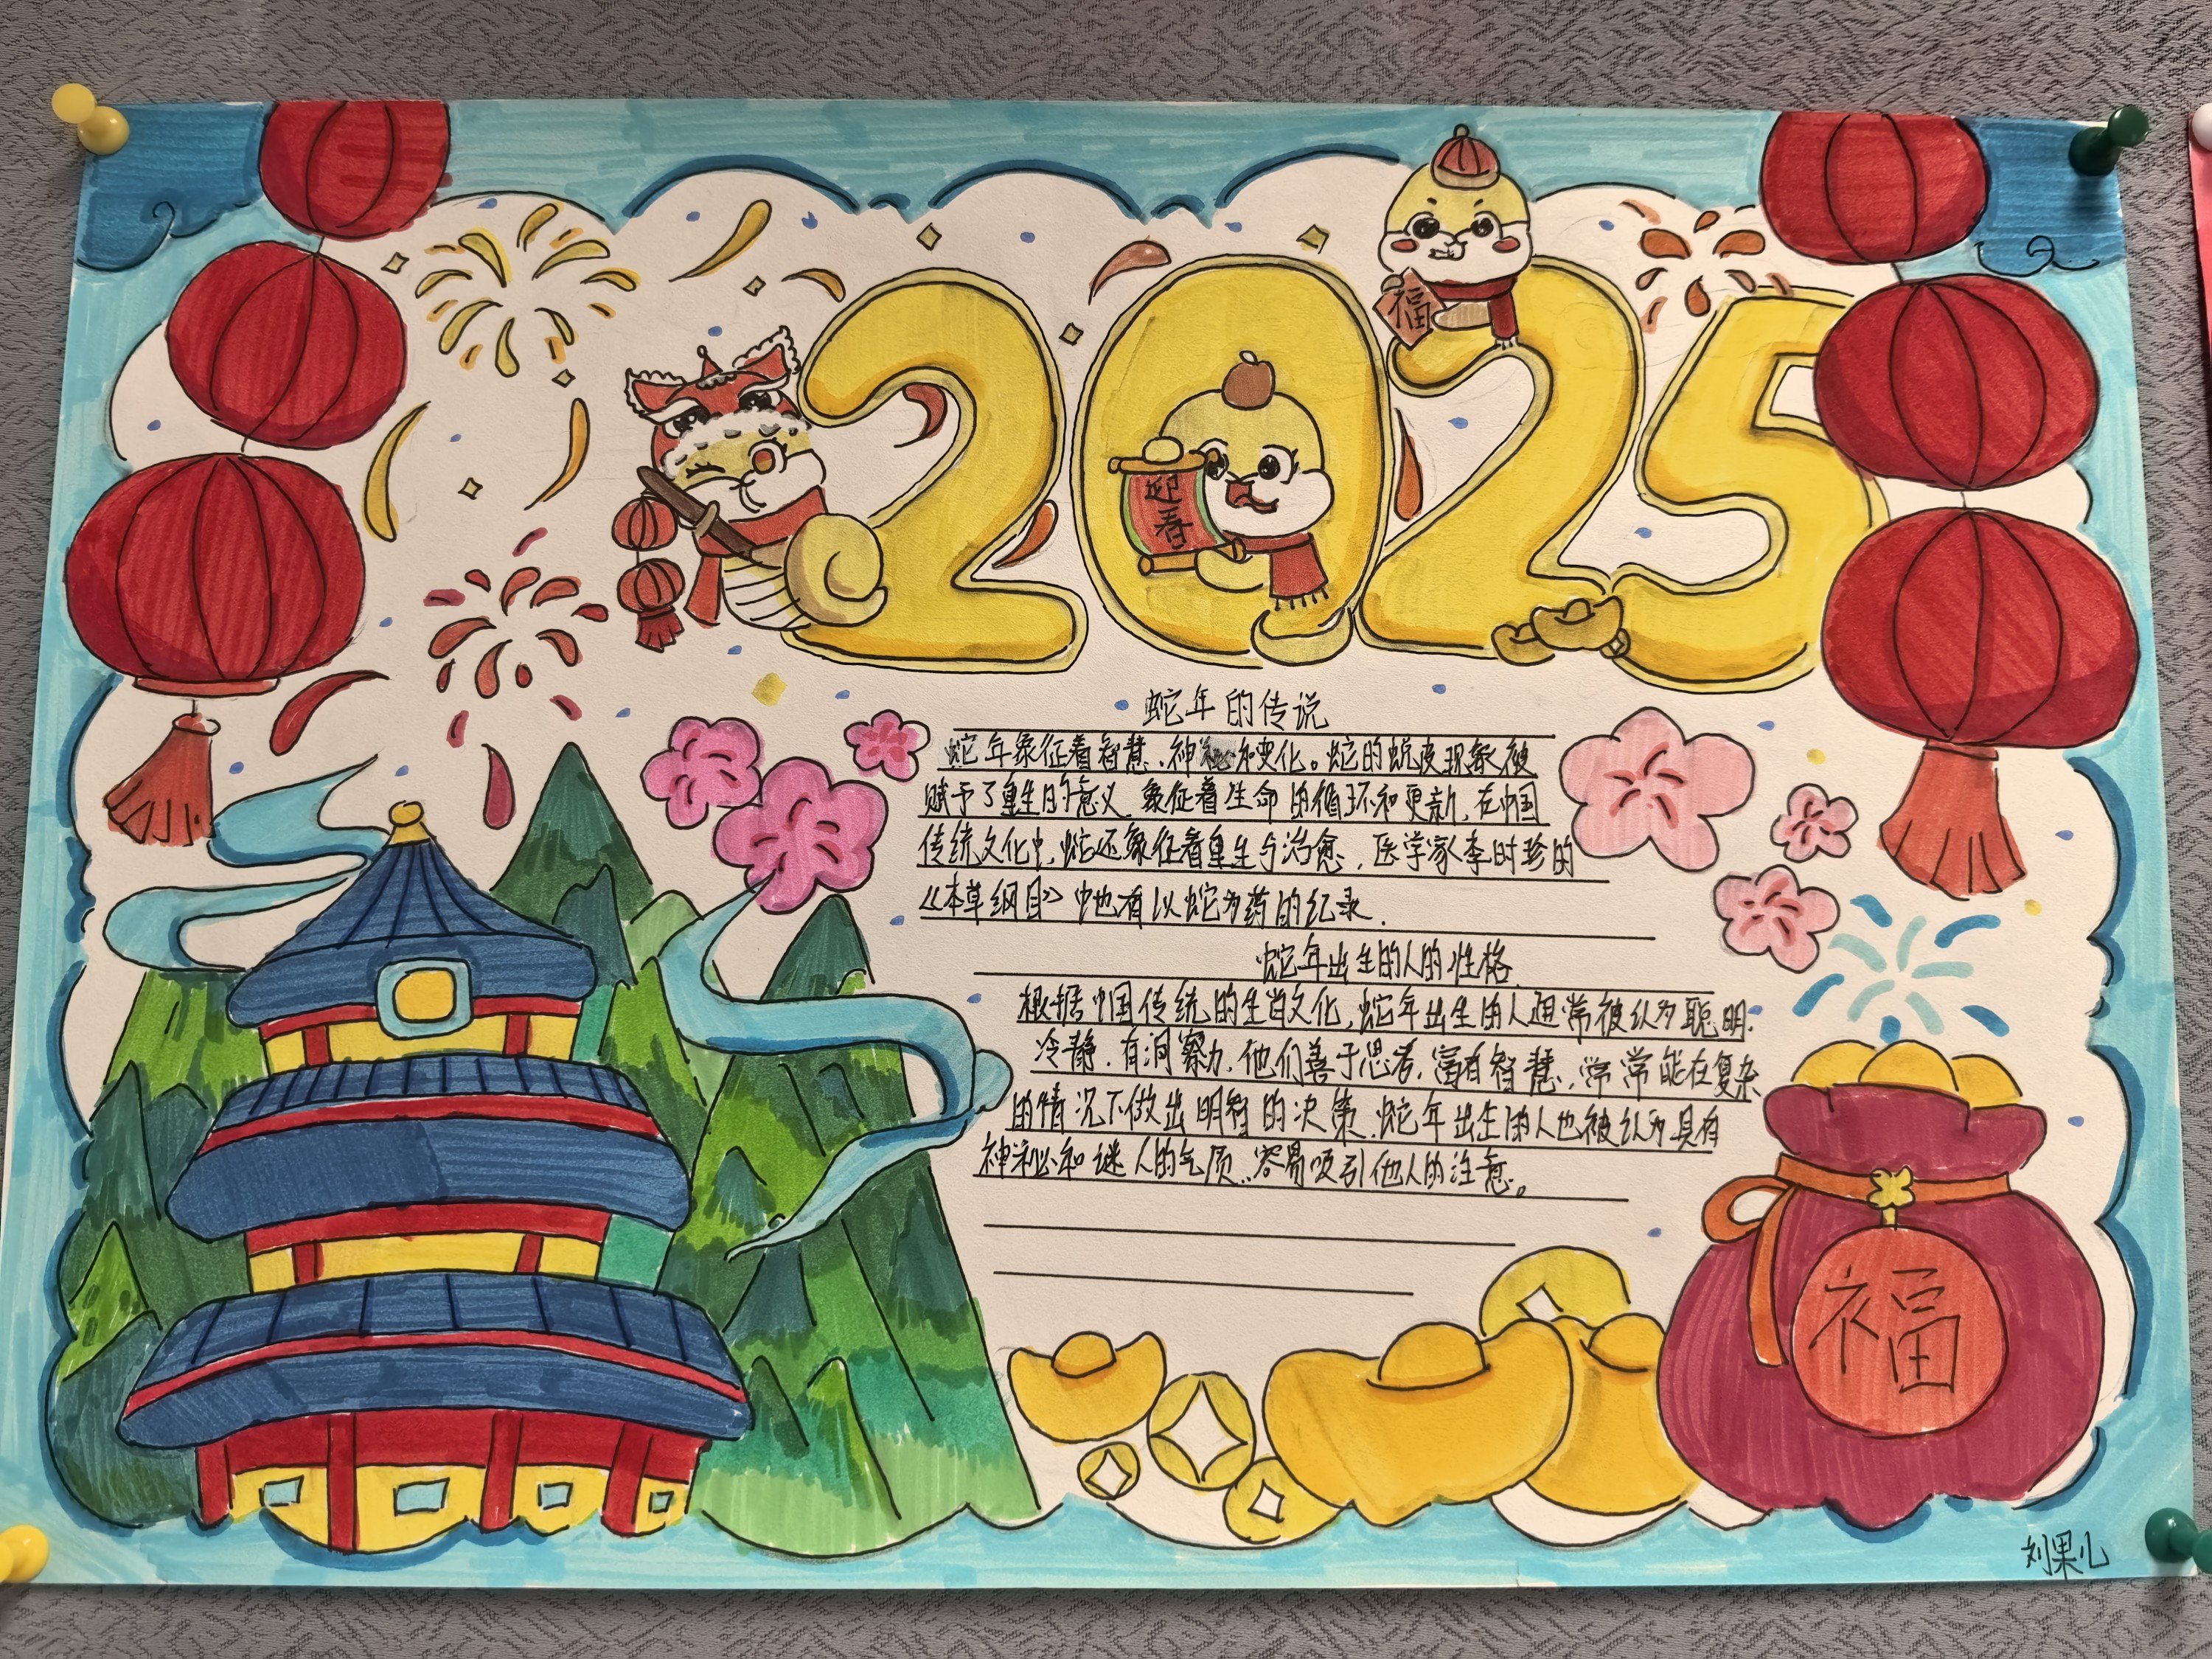 2025
福
迎春
蛇年的传说
蛇年象征着智慧、神秘和变化。蛇的蜕皮现象被
赋予了重生的意义,象征着生命的循环和更新,在中国
传统文化中,蛇还象征着重生与治愈,医学家李时珍的
《本草纲目》中也有以蛇为药的纪录.
蛇年出生的人的性格
根据中国传统的生肖文化,蛇年出生的人通常被认为聪明.
冷静.有洞察力.他们善于思考,富有智慧,常常能在复杂
的情况下做出明智的决策.蛇年出生的人也被认为具有
神秘和谜人的气质.容易吸引他人的注意。
福
刘果儿